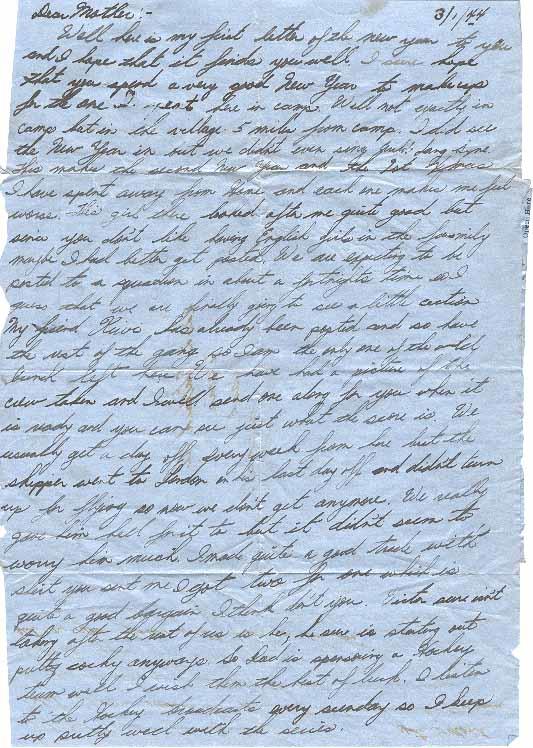 Dear Mother:- 3/1/44
Well here is my first letter of the new year to you
and I hope that it finds you well. I sure hope
that you spend a very good New Year to make up
for the one I spent here in camp. Well not exactly in
camp but in the village 5 miles from camp. I did see
the New Year in but we didn't even sing Auld lang syne
This makes the second New Year and the 2st Xmas
I have spent away from home and each one makes me feel
worse. The girl there looked after me quite good but
since you don't like having English girls in the family
maybe I had better get posted. We are expecting to be
posted to a squadron in about a fortnights time so I
guess that we are finally going to see a little action
My friend has already been posted and so have
the rest of the gang so I am the only one of the old
bunch left here. We have had a picture of the
crew taken and I will send one along for you when it
is ready and you can see just what the score is. We
usually get a day off every week from here but the
skipper went to London on his last day off and didn't turn
up for flying so now we don't get anymore. We really
gave him hell for it to but it didn't seem to
worry him much. I made quite a good trade with
shirt you sent me I got two for one which is
quite a good bargain I think don't you. Victor sure isn't
taking after the rest of us is he, he sure is starting out
pretty cocky anyways. So Dad is sponsoring a Hockey
team well I wish them the best of luck. I listen
to the Hockey broadcasts every sunday so I keep
up pretty well with the series.
Open Here